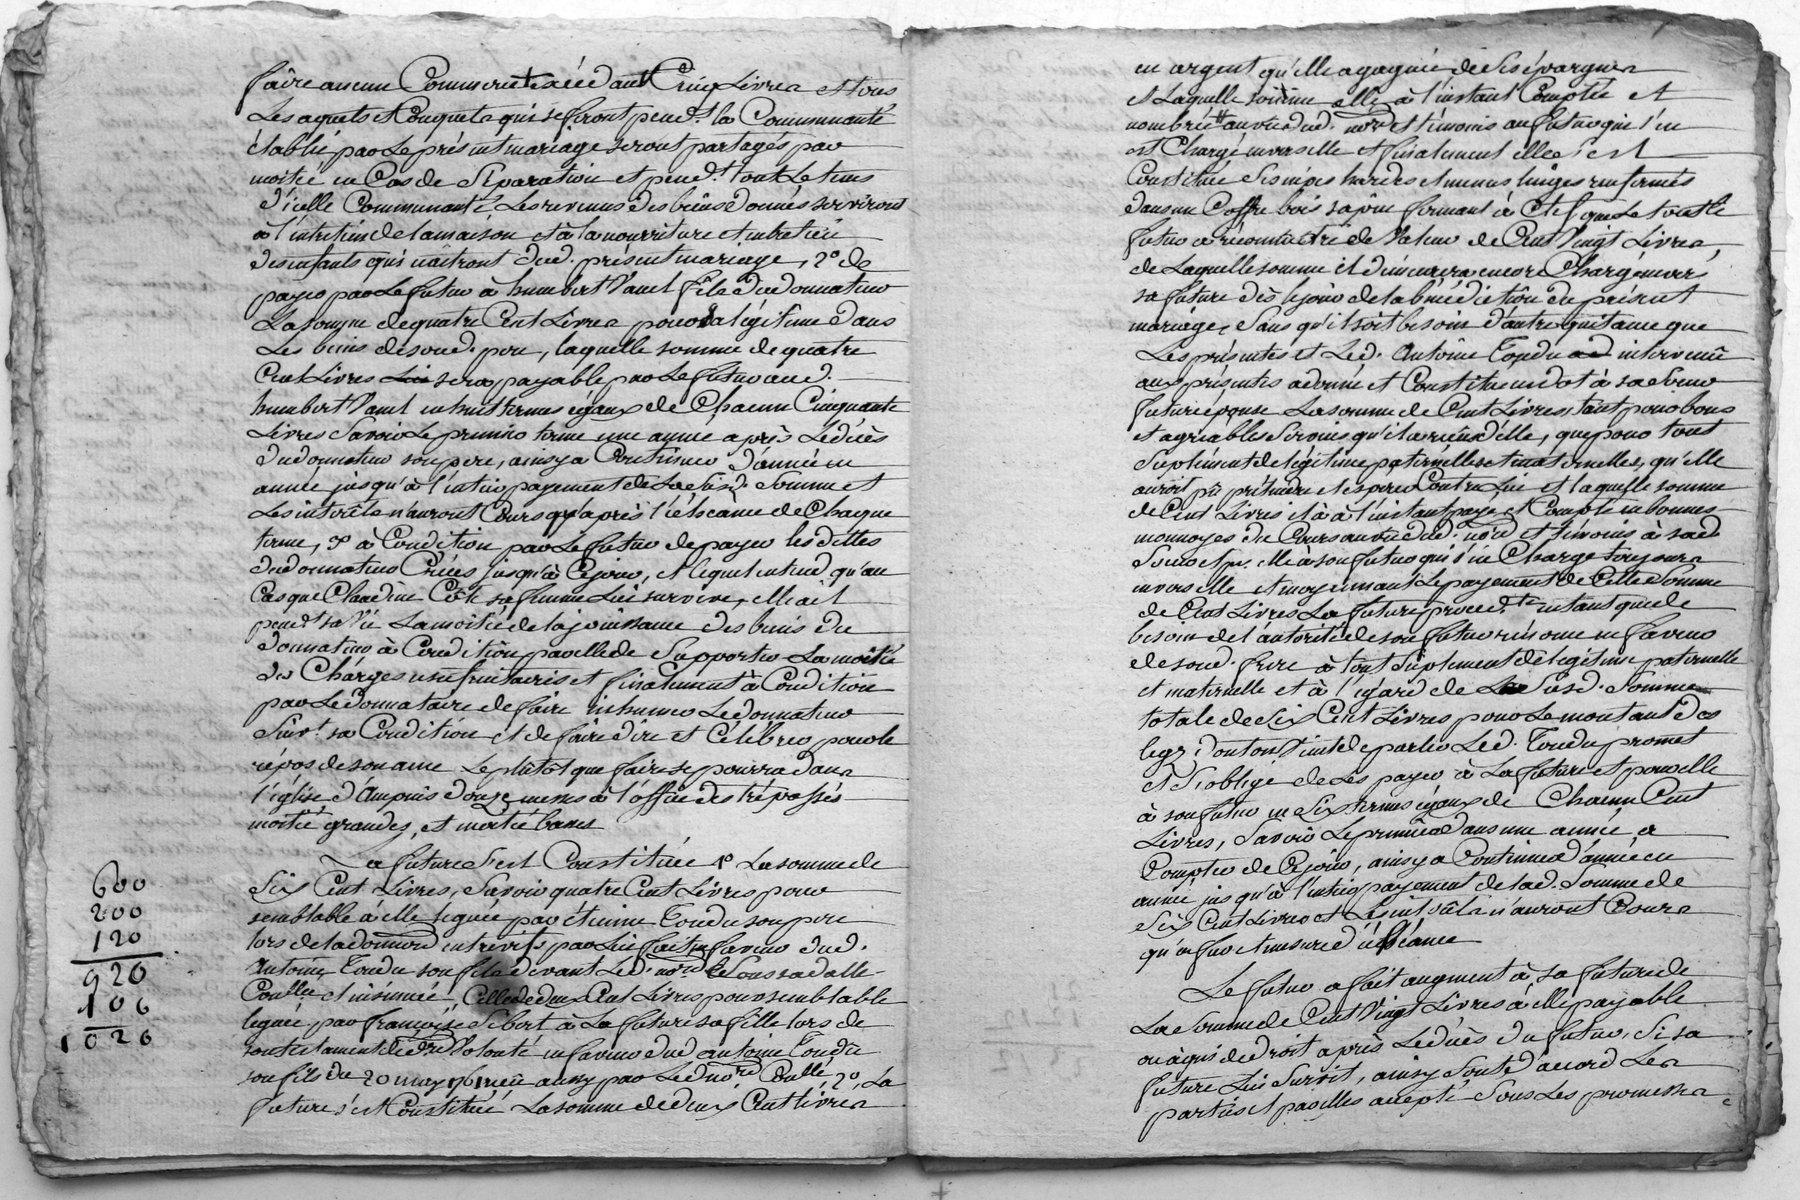 faire aucun Commerce excédant Cinq Livres et tous
Les aquets et Conquets qui se feront pend.t la Communauté
établie par Le présent mariage seront partagés par
moitié en Cas de Séparation et pend.t tout Le tems
d'icelle Communauté. Les revenus des biens donnés serviront
à l'entretien de la maison et à la nourriture et entretien
des enfants qui naitront dud. présent mariage, 2° de
payer par Le futur à humbert Vanel fils dud donnateur
La somme de quatre Cent Livres pour sa légitime dans
Les biens de soud. pere, laquelle somme de quatre
Cent Livres sera payable par Le futur aud.
humbert Vanel en huit termes égaux de Chacun Cinquante
Livres Savoir Le premier terme une année après Le décès
dud donnateur son pere, ainsy a Continuer d'année en
année jusqu'à l'entier payement de La susd. Somme et
Les intérêts n'auront Cours qu'après l'échéance de Chaque
terme, 3° à Condition par Le futur de payer les dettes
dud donnateur Créées jusqu'à Cejour, et lequel entend qu'au
Cas que Claudine sa femme Lui survive, elle ait
pend.t sa Vie La moitié de la jouissance des biens du
donnateur à Condition par elle de Supporter La moitié
des Charges usufruitaires et finalement à Condition
par Le donnataire de faire inhumer Le donnateur
Suiv.t sa Condition et de faire dire et Célébrer pour le
répos de son ame Le plutôt que faire se pourra dans
l'église d'Ampuis douze messes à l'office des trépassés
moitié grandes, et moitié basses
La future s'est Constituée 1° La somme de
Six Cent Livres, Savoir quatre Cent Livres pour
semblable à elle léguée par étienne Tondu son pere
lors de la donnaôn entrevifs par Lui fait en faveur dud.
Antoine Tondu son fils devant Led. no.re Sous sa datte
Coullée et insinuée, Celle de deux Cent Livres pour semblable
léguée par françoise Sibert à La future sa fille lors de
son testament de d.re Volonté en faveur dud antoine Tondu
son fils du 20 may 1761 reçu aussy par Led no.re Coullé 2°, La
future s'est Constitué La somme de deux Cent livres
600
200
120
920
106
1026
en argent qu'elle a gagnée de Ses épargnes
et Laquelle somme elle a à l'instant Comptée et
nombrée au vu dud. no.re et témoins au futur qui s'en
est Chargé envers elle et finalement elle s'est
Constituée Ses nipes hardes et menus linges renfermés
dans un Coffre bois sapin fermant à Clef que Le tout Le
futur a reconnu être de Valeur de Cent Vingt Livres,
de Laquelle somme il demeurera encore Chargé envers
sa future dès le jour de la bénédiction du présent
mariage, Sans qu'il soit besoin d'autre quitance que
Les présentes et Led. Antoine Tondu intervenu
aux présentes a donné et Constitué en dot à sa Soeur
future épouse La somme de Cent Livres, tant pour bons
et agréables Services qu'il a reçus d'elle, que pour tout
Suplément de légitime paternelle et maternelle, qu'elle
auroit pû prétendre et espérer Contre Lui et laquelle somme
de Cent Livres il a à l'instant payé et Compté en bonnes
monnoyes du Cours au vu dud. no.re et témoins à sad
Soeur et par elle à son futur qui s'en Charge toujours
envers elle et moyennant Le payement de Cette Somme
de Cent Livres La future proced.te en tant que de
besoin de l'autorité de son futur renonce en faveur
de soud. frere à tout Suplement de légitime paternelle
et maternelle et à l'égard de La Susd. Somme
totale de Six Cent Livres pour Le montant des
legs dont on Vient de parler Led. Tondu promet
et s'oblige de Les payer à La future et pour elle
à son futur en Six termes égaux de Chacun Cent
Livres, Savoir Le premier dans une année a
Compter de Cejour, ainsy a Continuer d'année en
année jusqu'à l'entier payement de lad. Somme de
Six Cent Livres et Les intérêts n'auront Cours
qu'à fur et mesure d'échéance
Le futur a fait augment à sa future de
La Somme de Cent Vingt Livres à elle payable
ou à qui de droit après Le décès du futur, Si sa
future Lui Survit, ainsy Sont d'accord Les
parties et par elles accepté Sous Les promesses